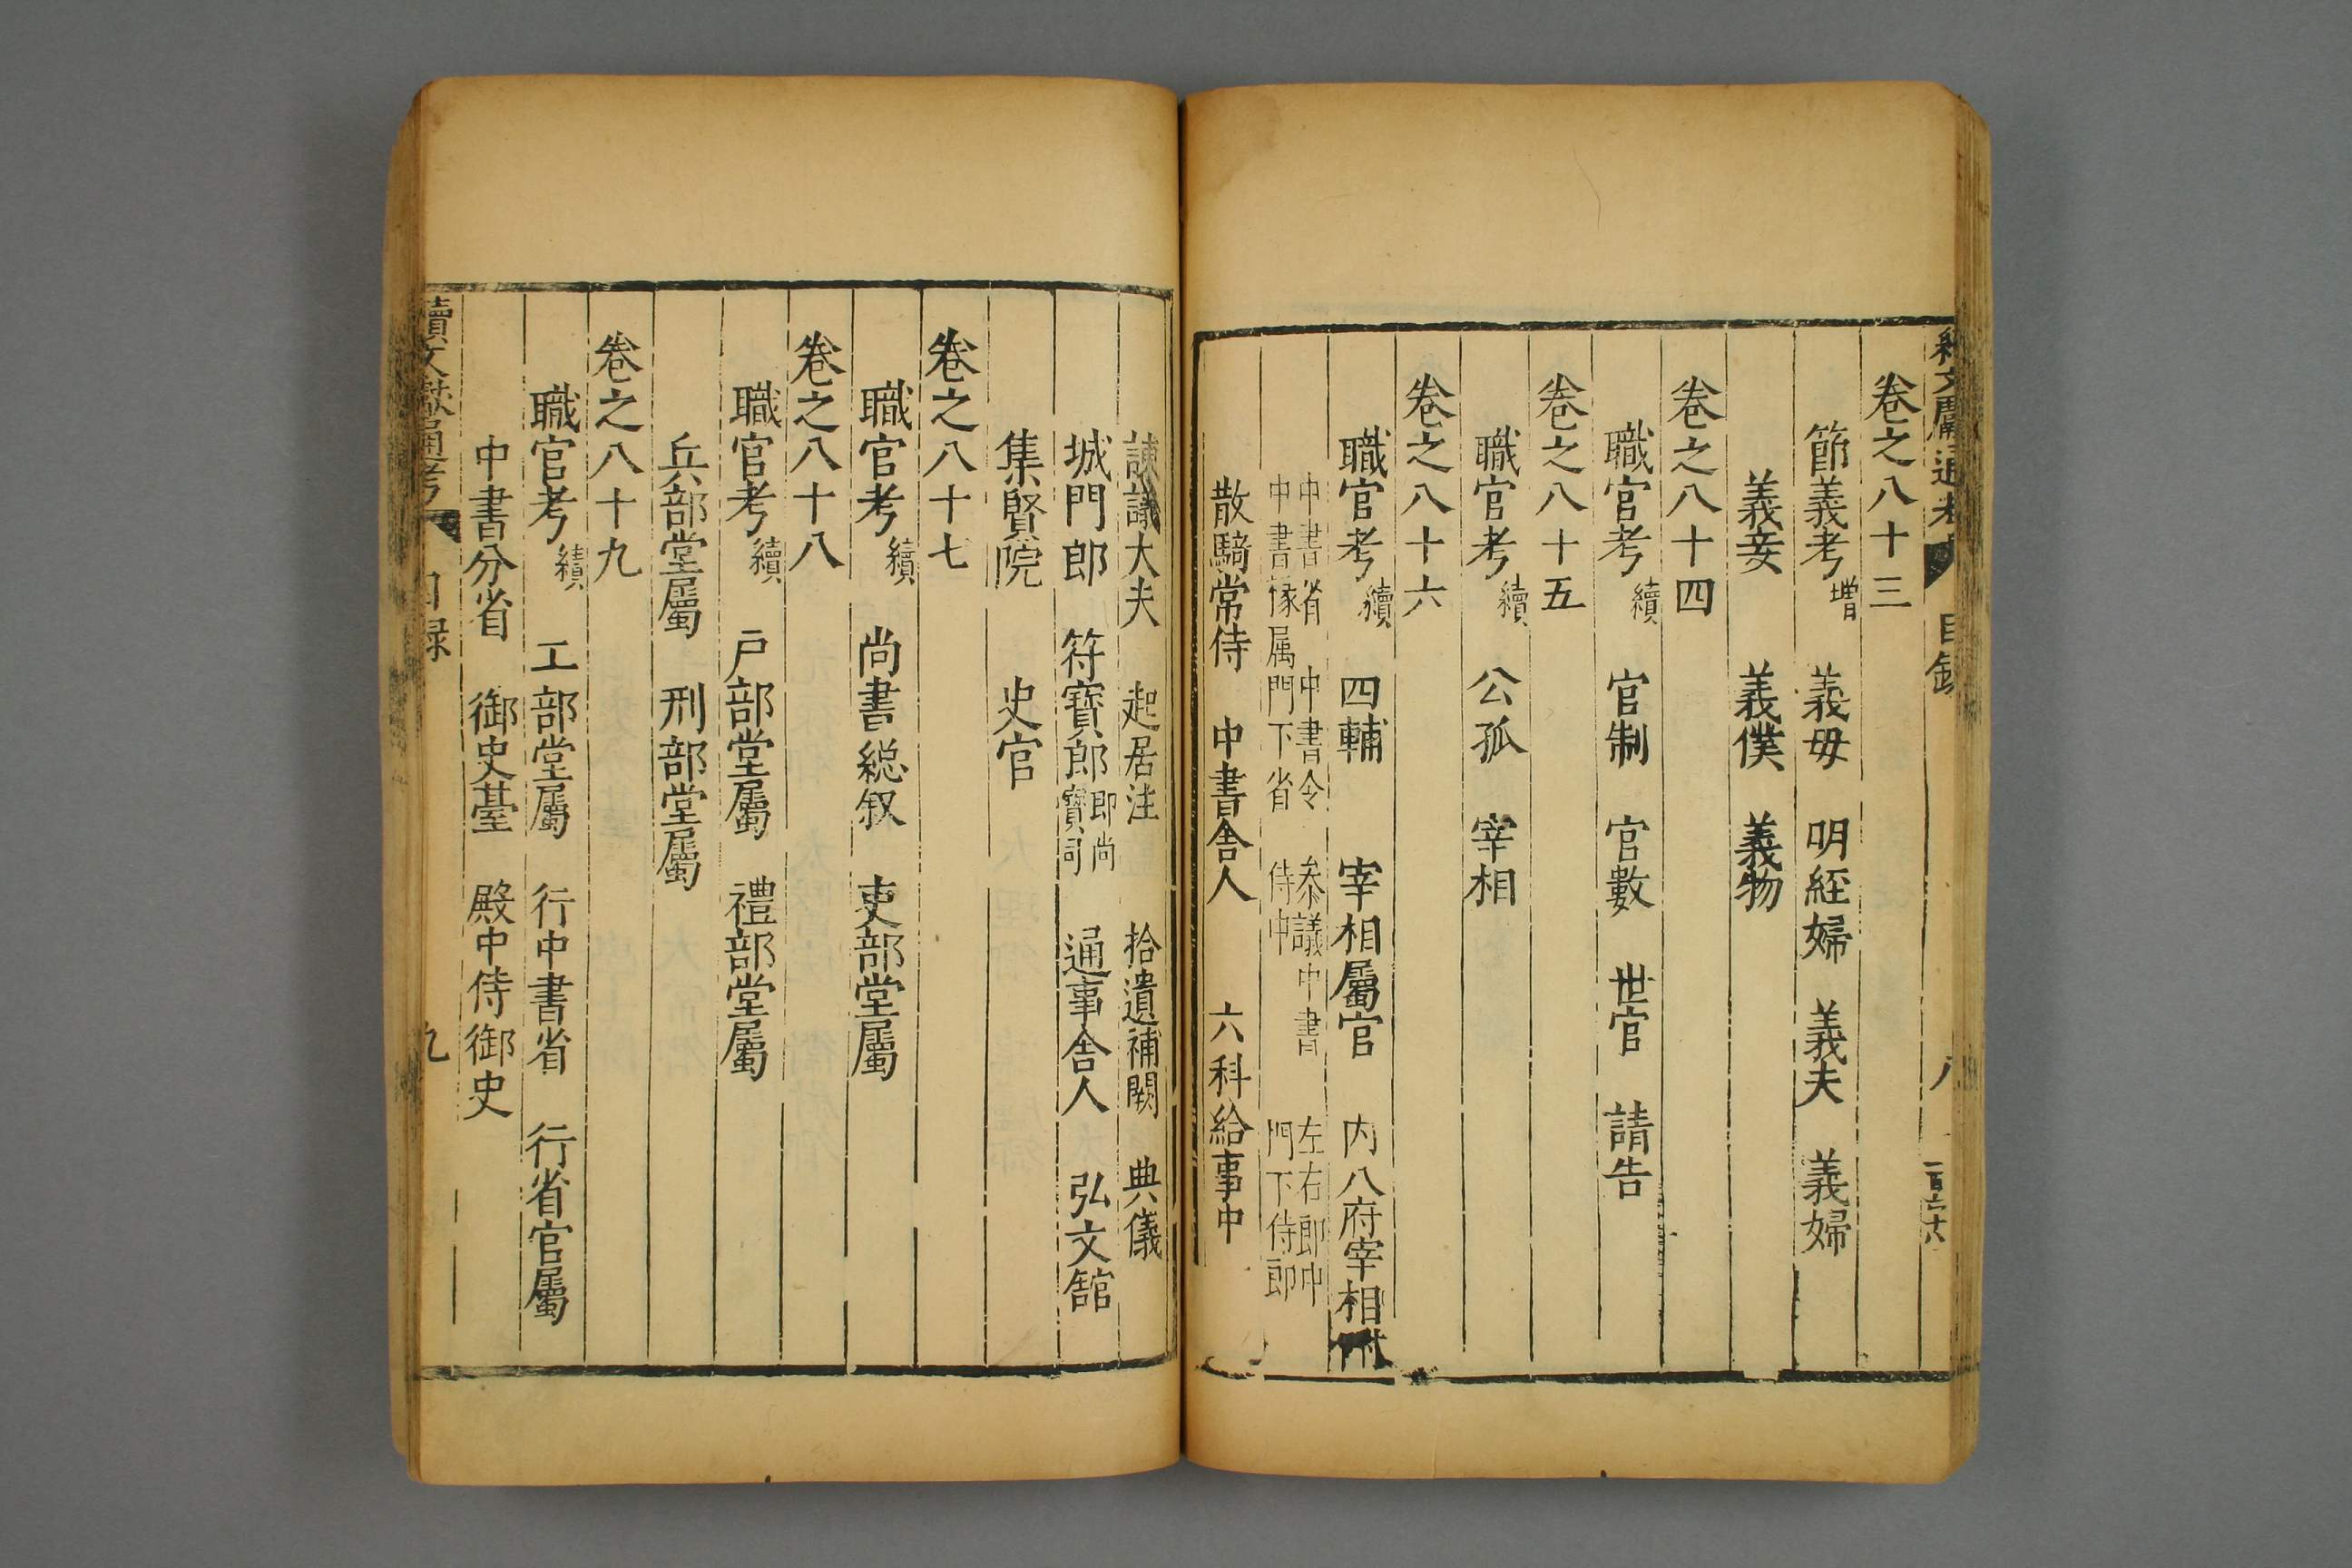 續文獻通考 目録 八
卷之八十三
節義考增 義母 明經婦 義夫 義婦
義妾 義僕 義物
卷之八十四
職官考續 官制 官數 世官 請告
卷之八十五
職官考續 公孤 宰相
卷之八十六
職官考續 四輔 宰相屬官 内八府宰相
中書省 中書令 叅議中書 左右郎中
中書掾属 門下省 侍中 門下侍郎
散騎常侍 中書舎人 六科給事中
諫議大夫 起居注 拾遺補闕 典儀
城門郎 符寳郎即尚寳司 通事舎人 弘文舘
集賢院 史官
卷之八十七
職官考續 尚書総叙 吏部堂屬
卷之八十八
職官考續 戸部堂屬 禮部堂屬
兵部堂屬 刑部堂屬
卷之八十九
職官考續 工部堂屬 行中書省 行省官屬
中書分省 御史䑓 殿中侍御史
續文獻通考 目録 九